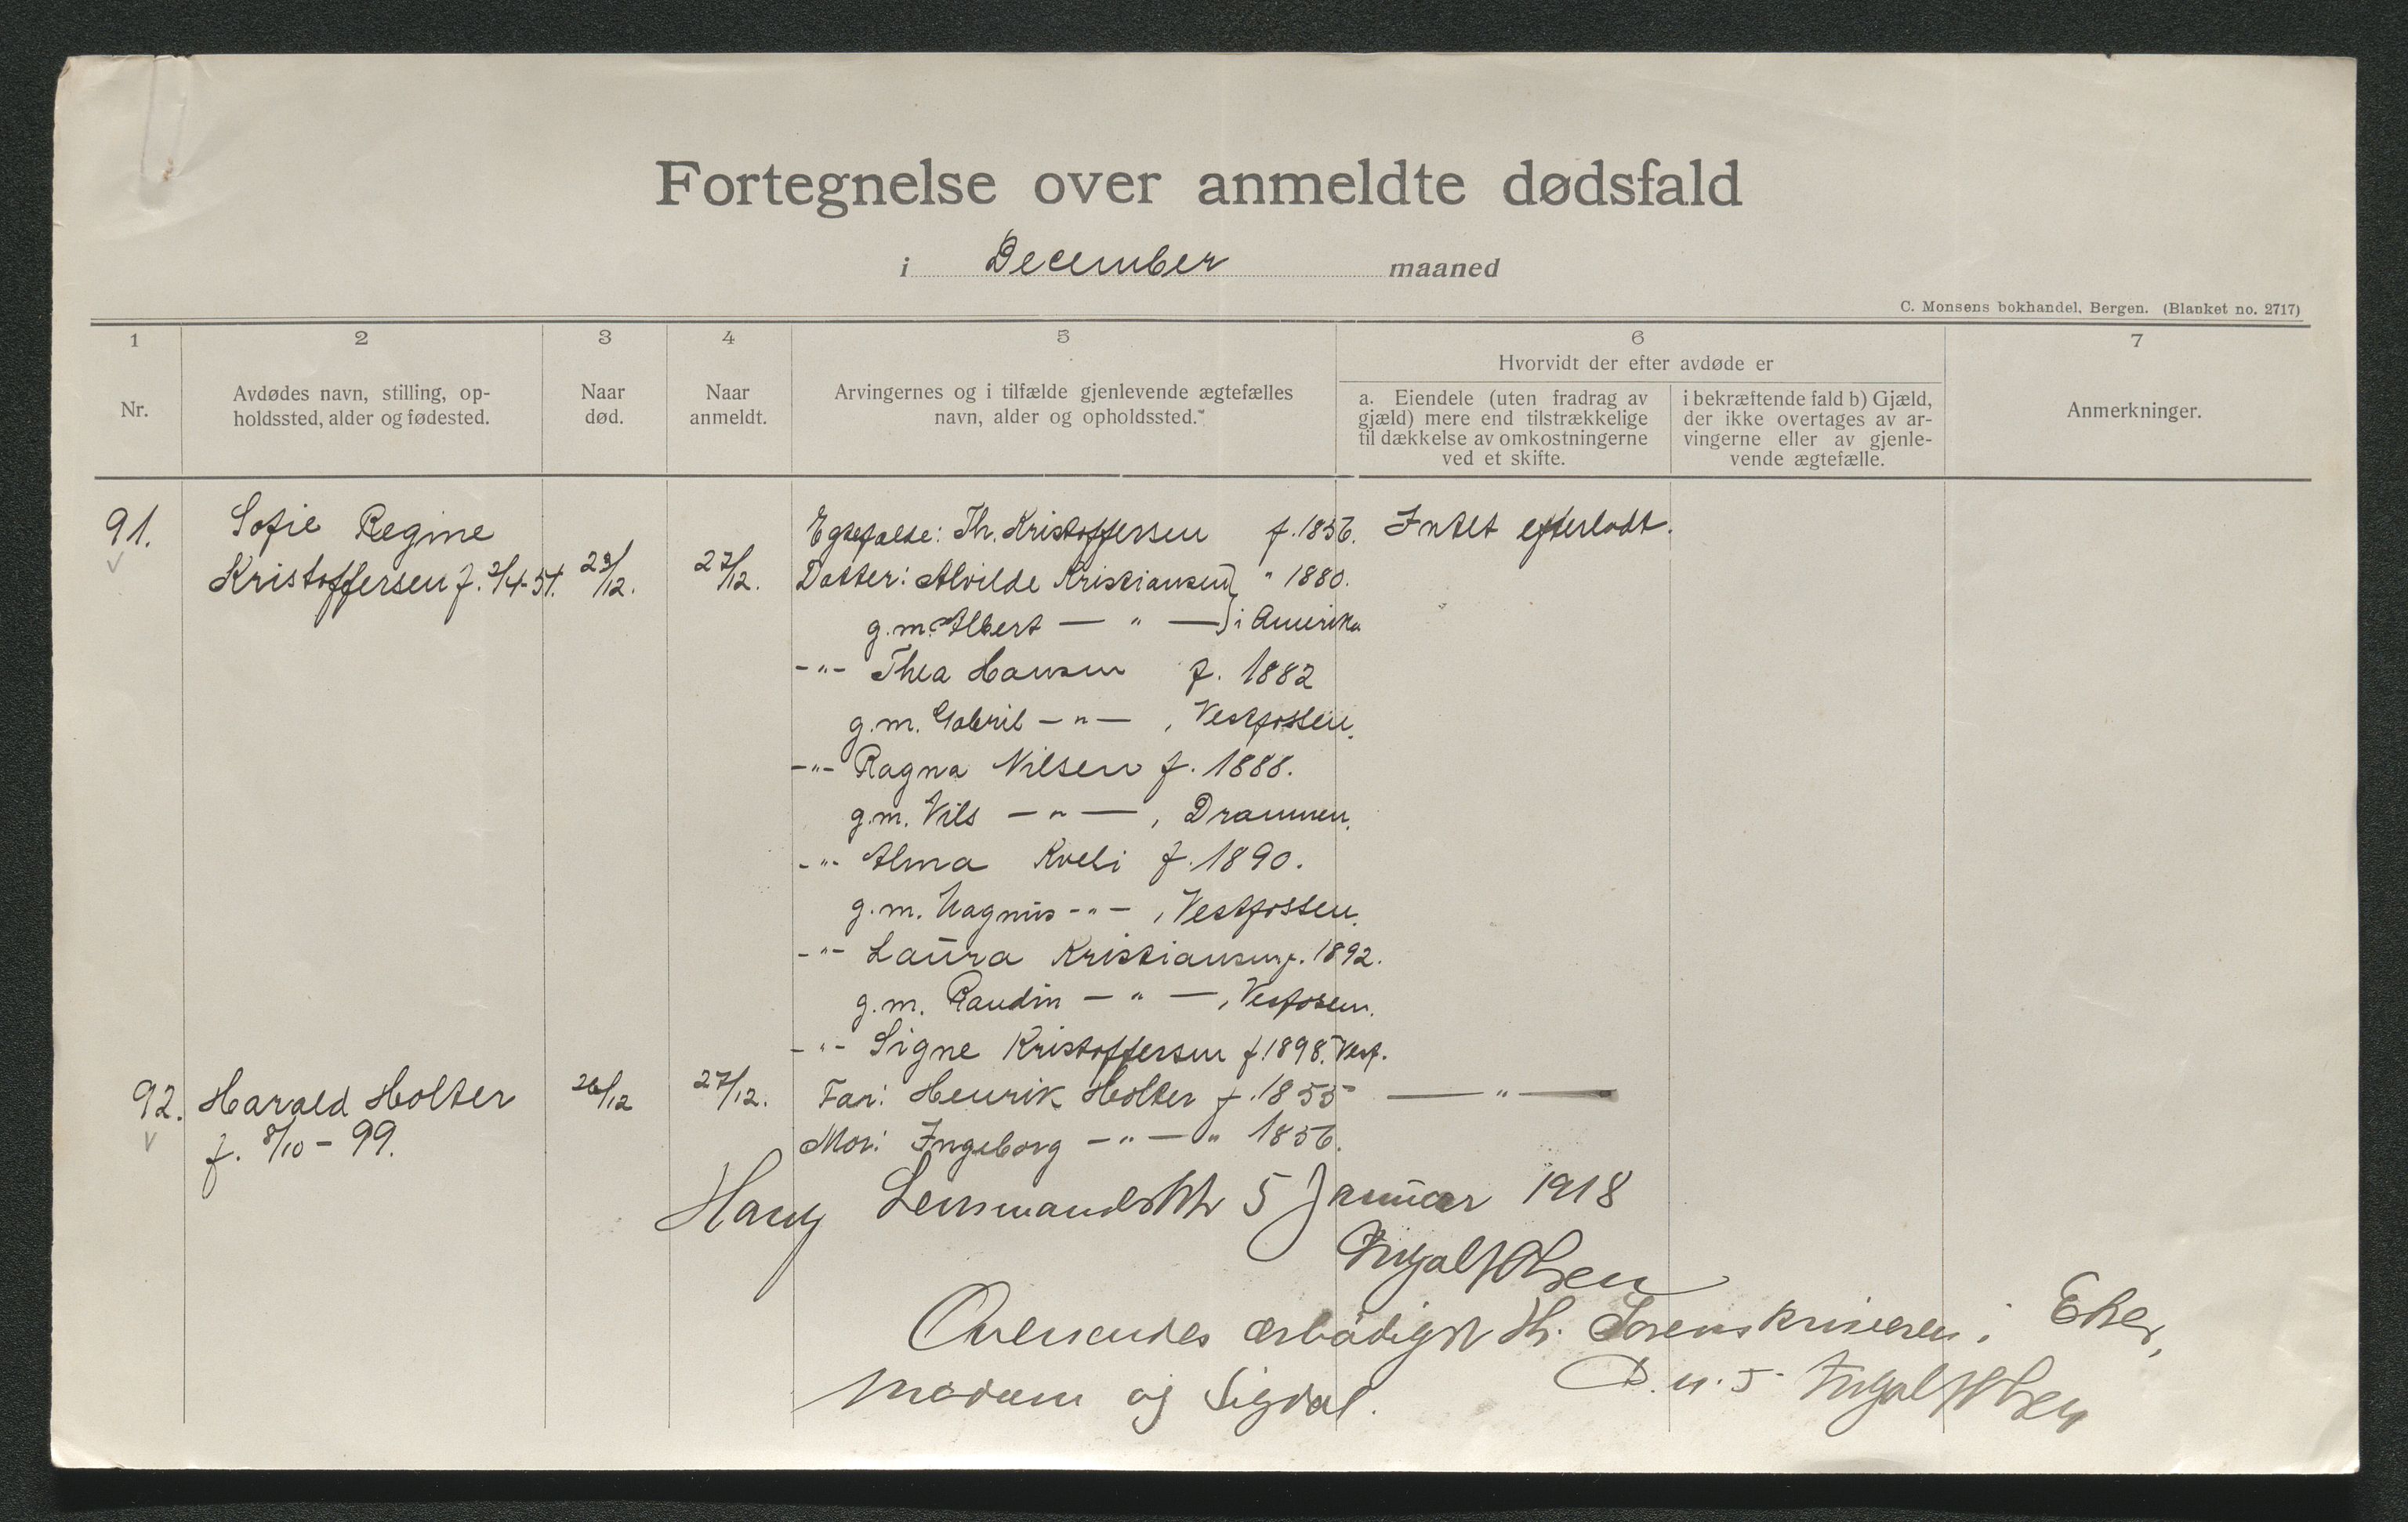 Fortegnelse over anmeldte dødsfald
i December maaned
C. Monsens bokhandel, Bergen. (Blanket no. 2717)
1
Nr.
2
Avdødes navn, stilling, op-
holdssted, alder og fødested.
3
Naar
død.
4
Naar
anmeldt.
5
Arvingernes og i tilfælde gjenlevende ægtefælles
navn, alder og opholdssted.
6
Hvorvidt der efter avdøde er
a. Eiendele (uten fradrag av
gjæld) mere end tilstrækkelige
til dækkelse av omkostningerne
ved et skifte.
i bekræftende fald b) Gjæld,
der ikke overtages av ar-
vingerne eller av gjenle-
vende ægtefælle.
7
Anmerkninger.
91.
Sofie Regine
Kristoffersen f. 2/4-51.
23/12.
27/12.
Egtefælde: Th. Kristoffersen f. 1856.
Datter: Alvilde Kristiansen " 1880.
g.m. Albert — " — i Amerika
-"- Thea Hansen f. 1882
g.m. Gabril — " — , Vestfossen.
-"- Ragna Nilsen f. 1888.
g.m. Nils — " — , Drammen.
-"- Alma Kveli f. 1890.
g.m. Magnus -"- , Vestfossen.
-"- Laura Kristiansen f. 1892.
g.m. Raudin — " — , Vestfossen.
-"- Signe Kristoffersen f. 1898. Vestf.
Intet efterladt.
92.
Harald Holter
f. 8/10 - 99.
26/12
27/12.
Far: Henrik Holter f. 1855
Mor: Ingeborg -"- " 1856.
— " —
Haug Lensmandsktr 5 Januar 1918
Oversendes ærbødigst Hr. Sorenskriveren i Eker,
Modum og Sigdal.
D. u. s.